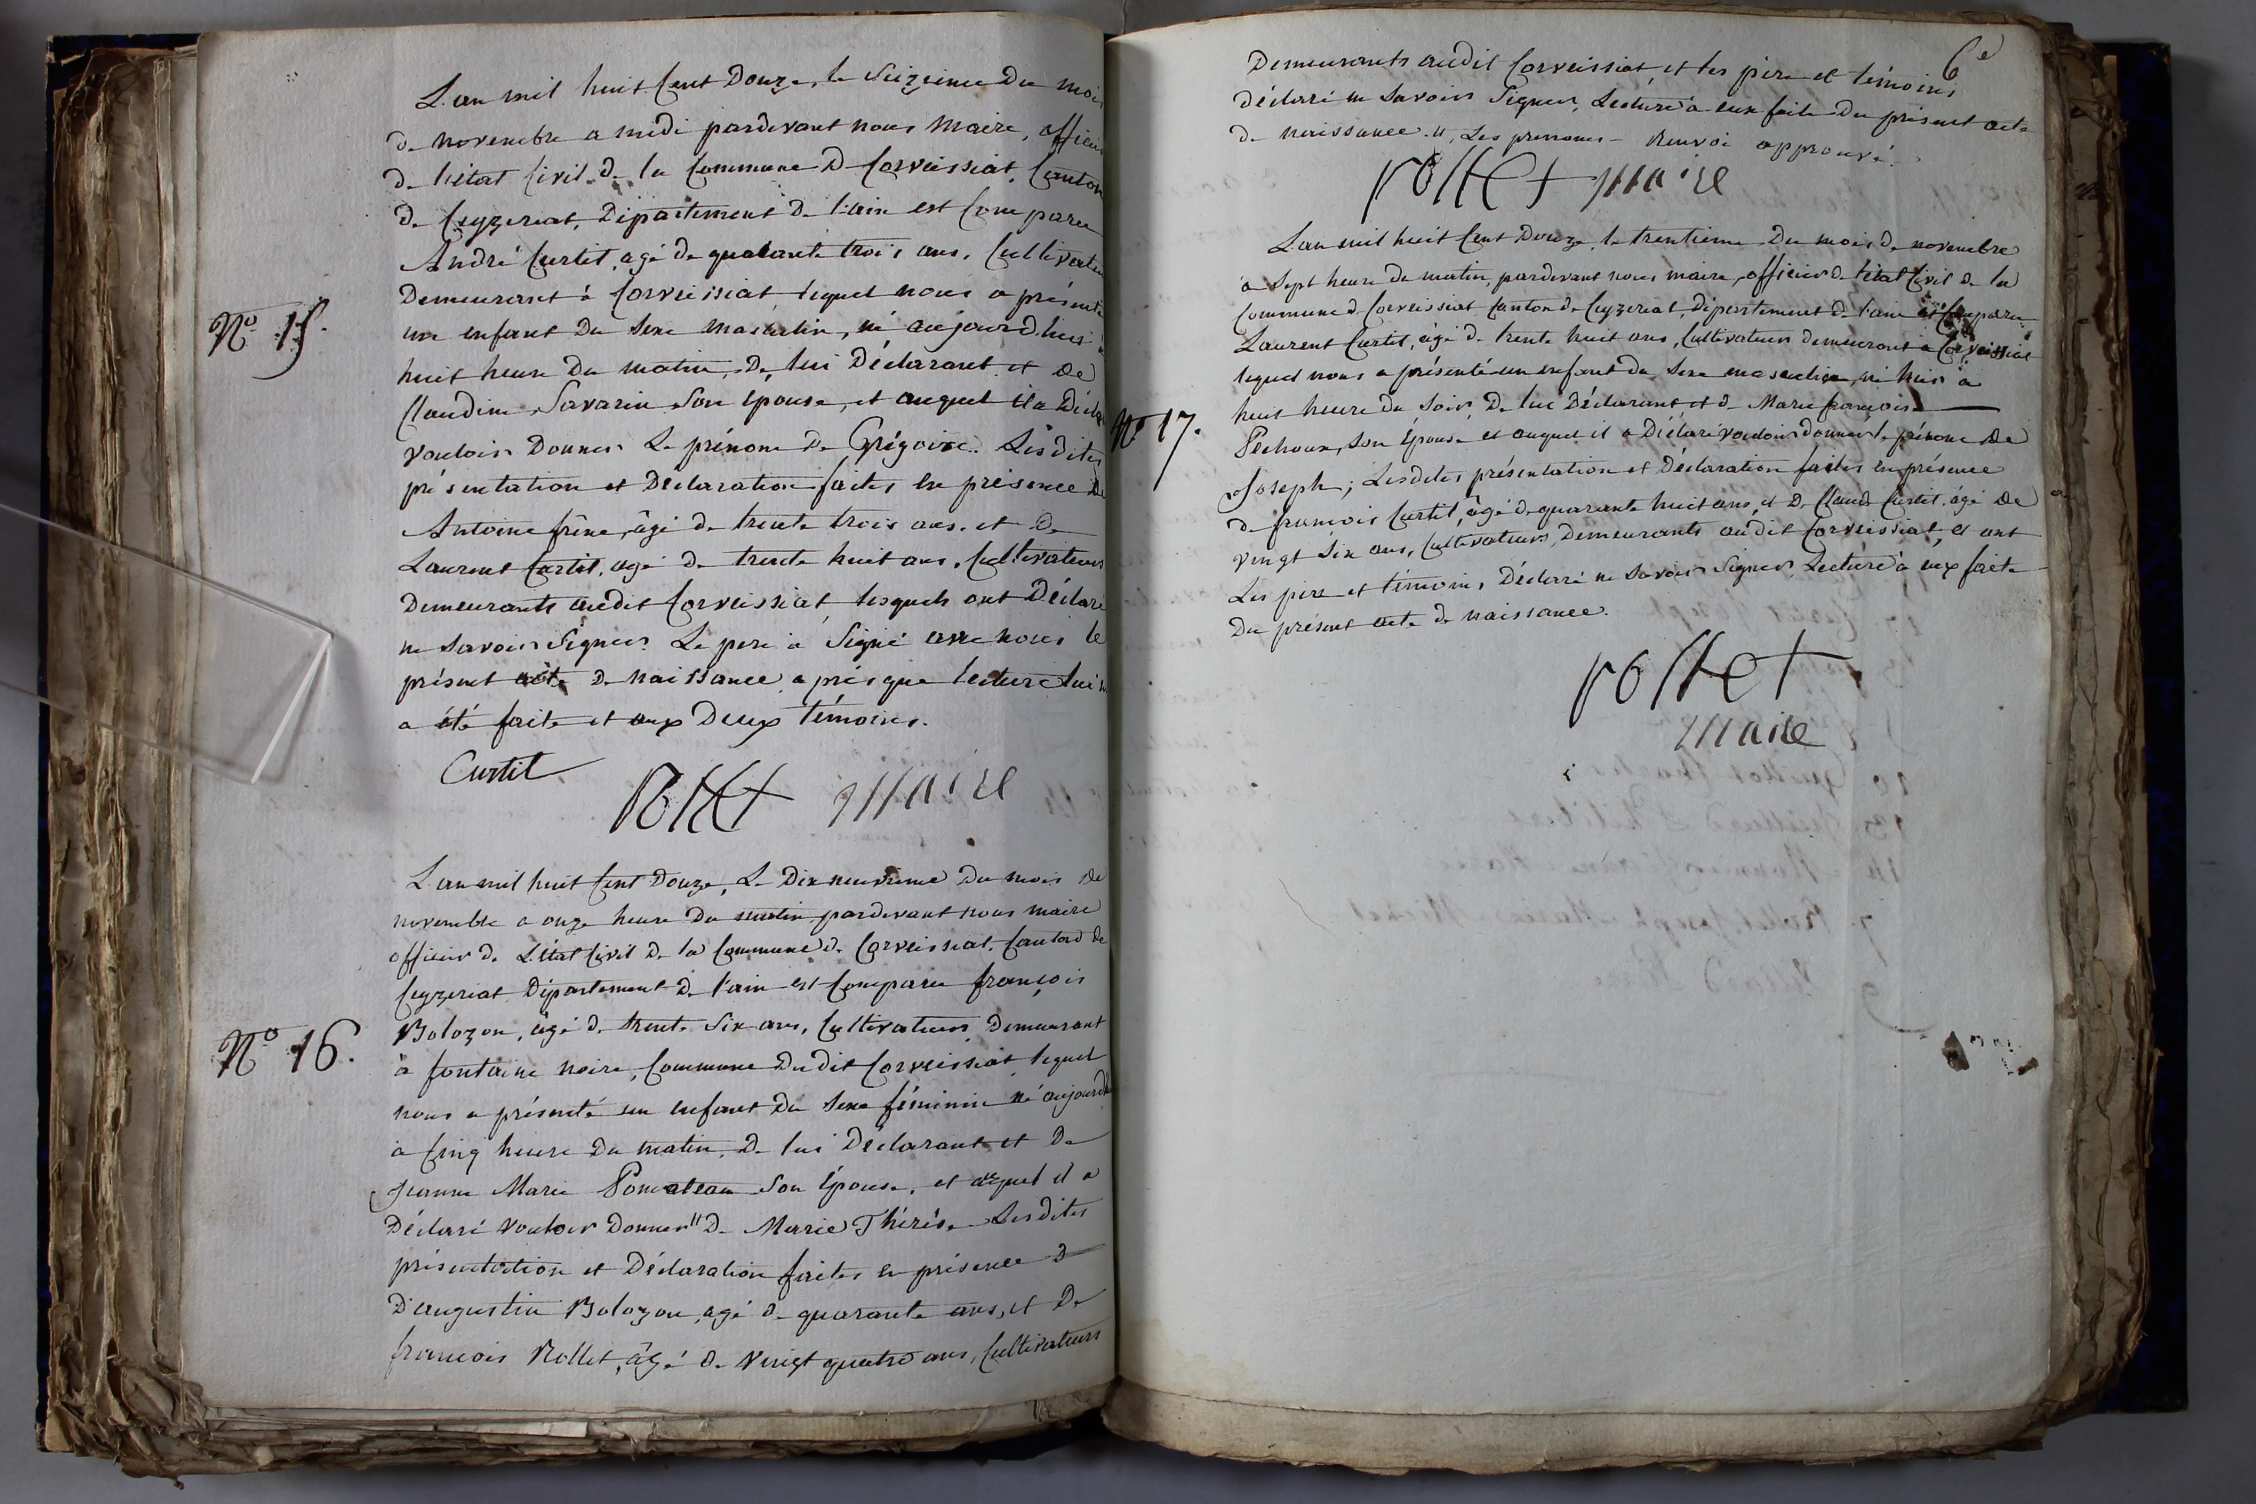 L'an mil huit Cent Douze, le Seizieme Du mois
de novembre a midi pardevant nous Maire, officier
de l'état Civil de la Commune de Corveissiat, Canton
de Ceyzeriat, Département de l'ain est Comparu
André Curtit, agé de quarante trois ans, Cultivateur
Demeurant à Corveissiat lequel nous a présenté
un enfant du Sexe Masculin, né aujourd'hui à
N.º 15.
huit heure Du matin, De lui Déclarant et De
Claudine Savarin Son épouse, et auquel il a Déclaré
Vouloir Donner Le prénom De Grégoire. Lesdites
présentation et Déclaration faites en présence De
Antoine frêne, âgé de trente trois ans, et De
Laurent Curtit, agé de trente huit ans, Cultivateurs
Demeurants audit Corveissiat, lesquels ont Déclaré
ne Savoir Signer. Le pere a Signé avec nous le
présent acte De naissance après que lecture lui
a été faite et aux Deux témoins.
Curtil
Rollet maire
L'an mil huit Cent Douze, Le Dix neuvieme Du mois De
novembre a onze heure Du matin, pardevant nous maire
officier de L'état Civil De la Commune de Corveissiat, Canton de
Ceyzeriat Département De l'ain est Comparu françois
N.º 16.
Bolozon, âgé de trente Six ans, Cultivateur, Demeurant
à fontaine noire, Commune Dudit Corveissiat, lequel
nous a présenté un enfant Du Sexe féminin né aujourd'hui
à Cinq heure Du matin, De lui Déclarant et De
Jeanne Marie Son épouse, et auquel il a
Déclaré Vouloir Donner " De Marie Thérèse Lesdites
présentation et Déclaration faites en présence D
D'augustin Bolozon, agé de quarante ans, et De
françois Rollet, âgé de vingt quatre ans, Cultivateurs
6e
Demeurants audit Corveissiat, et les père et témoins
Déclaré ne Savoir Signer, Lecture à eux faite Du présent acte
de naissance. ", Les prenoms - Renvoi approuvé.
Rollet maire
L'an mil huit Cent Douze, le trentieme Du mois De novembre
à Sept heure du matin, pardevant nous maire, officier de l'état Civil de la
Commune de Corveissiat Canton de Ceyzeriat, Département de l'ain est Comparu
Laurent Curtit, âgé de trente huit ans, Cultivateur demeurant à Corveissiat
lequel nous a présenté un enfant du Sexe masculin, né hier à
N.º 17.
huit heure du Soir, De lui Déclarant, et de Marie françoise
Pechoux, Son Épouse et auquel il a Déclaré vouloir donner le prénom De
Joseph; Lesdites présentation et Déclaration faites en présence
de françois Curtit, âgé de quarante huit ans, et De Claude Curtit, âgé De
vingt Six ans, Cultivateurs, Demeurants audit Corveissiat, et ont
Les pere et témoins Déclaré ne Savoir Signer, Lecture à eux faite
Du présent acte de naissance.
Rollet
maire